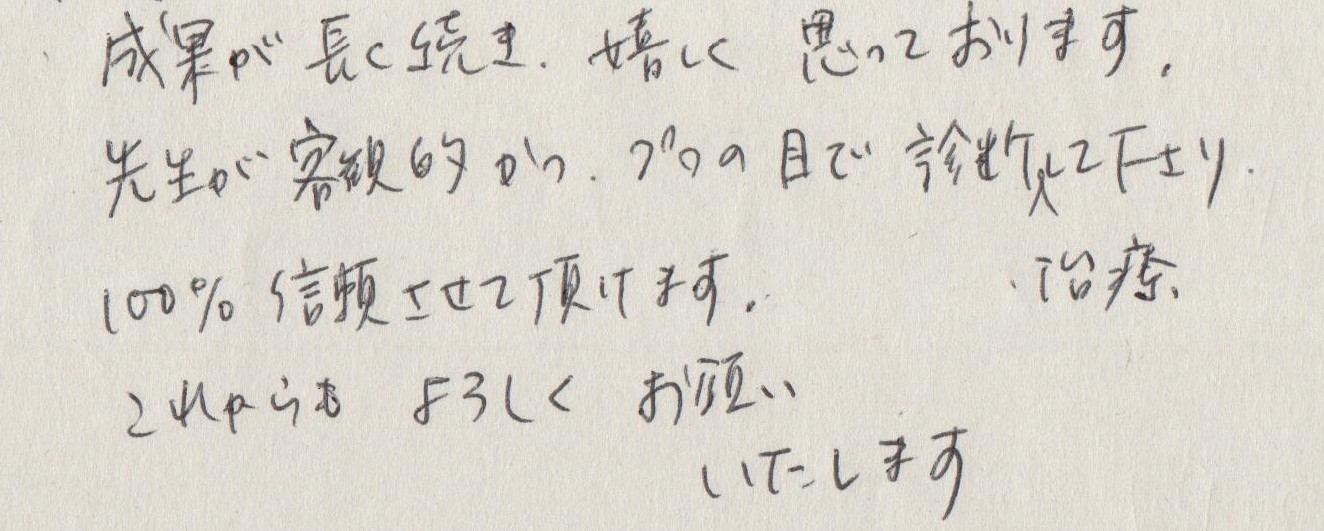 成果が長く続き、嬉しく思っております。
先生が客観的かつ、プロの目で診断、治療して下さり、
100%信頼させて頂けます。
これからもよろしくお願い
いたします